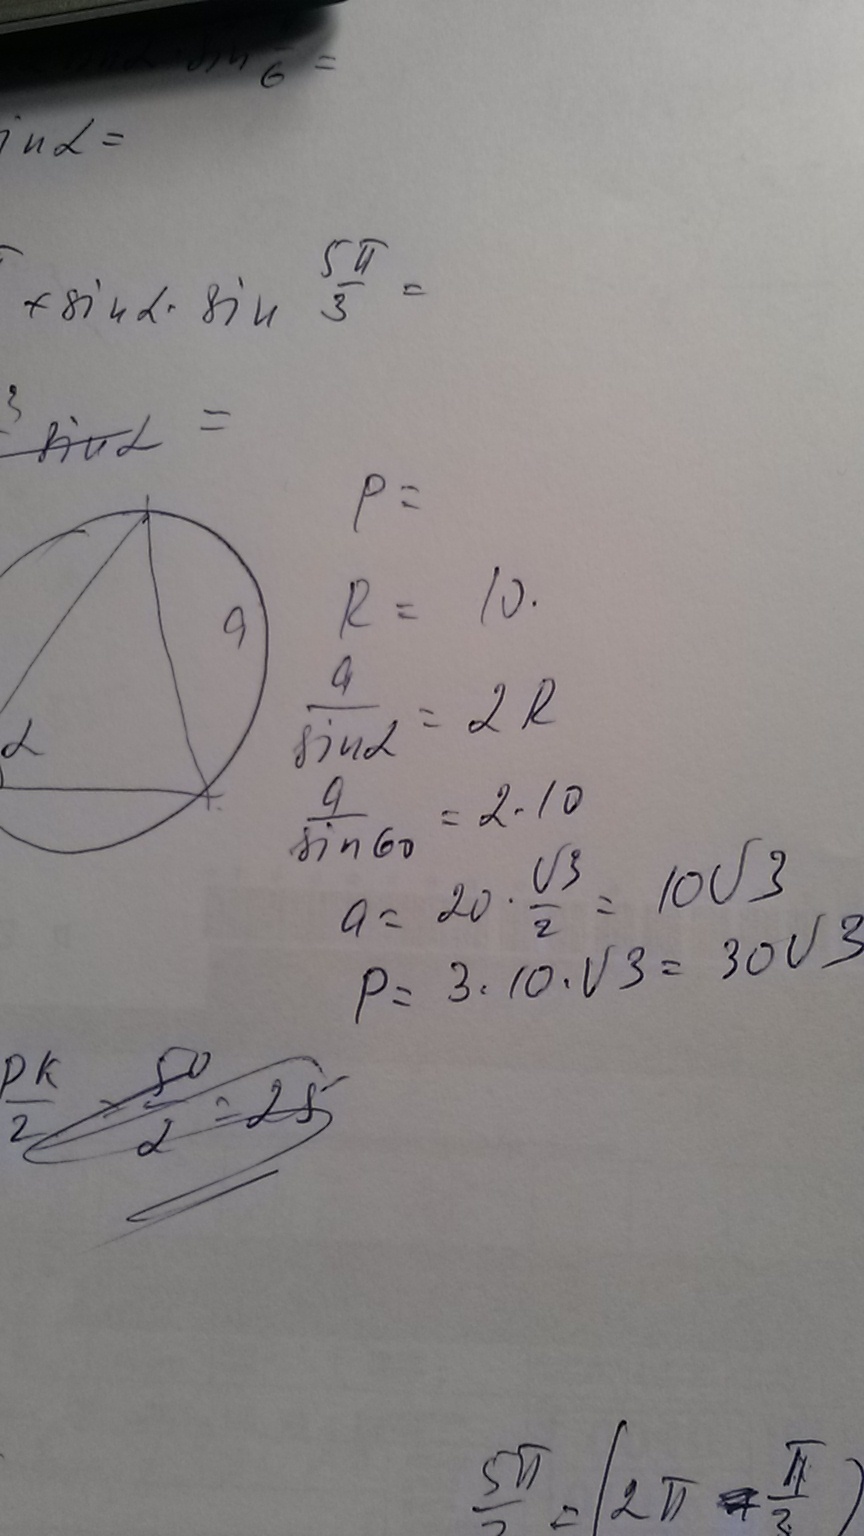 sin π/6 =
sinα =
+ sinα · sin 5π/3 =
3 sinα =
P =
R = 10.
a
α
a/sinα = 2R
a/sin60 = 2·10
a = 20 · √3/2 = 10√3
P = 3·10·√3 = 30√3
PK/2 = 50/2 = 25
5π/3 = (2π - π/3)